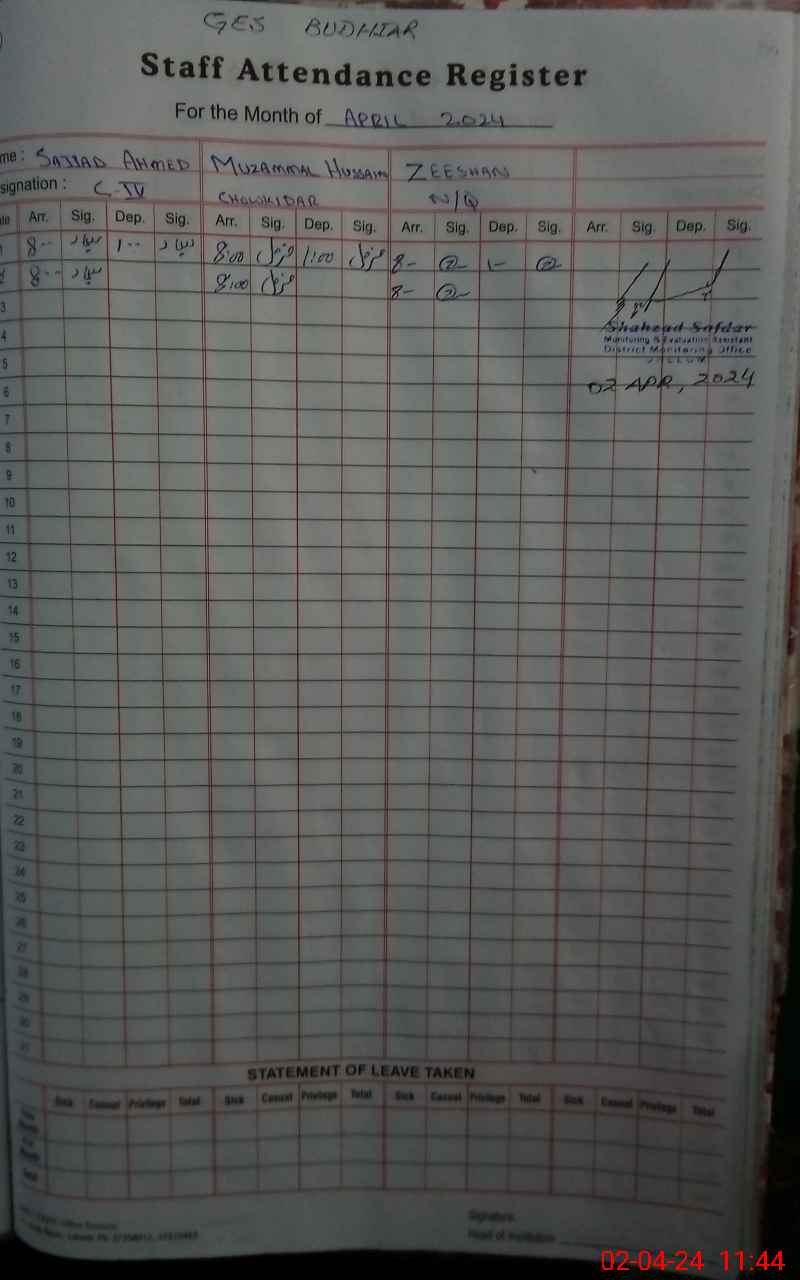 GES BUDHIAR
Staff Attendance Register
For the Month of APRIL 2024
me : SAJJAD AHMED MUZAMMAL HUSSAIN ZEESHAN
signation : C-IV CHOWKIDAR N/Q
Arr. Sig. Dep. Sig. Arr. Sig. Dep. Sig. Arr. Sig. Dep. Sig. Arr. Sig. Dep. Sig.
1 8-- سجاد 1-- سجاد 8:00 مزمل 1:00 مزمل 8- 1-
2 8-- سجاد 8:00 مزمل 8-
3
Shahzad Safdar
4 Monitoring & Evaluation Assistant
District Monitoring Office
5 JHELUM
02 APR, 2024
6
7
8
9
10
11
12
13
14
15
16
17
18
19
20
21
22
23
24
25
26
27
28
29
30
31
STATEMENT OF LEAVE TAKEN
Sick Casual Privilege Total Sick Casual Privilege Total Sick Casual Privilege Total Sick Casual Privilege Total
Total
Signature
Head of Institution
02-04-24 11:44